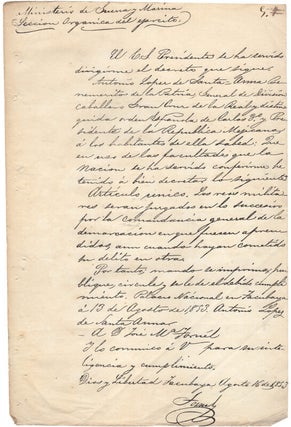 Ministerio de Guerra y Marina
Seccion Organica del ejercito.
El E. S. Presidente se ha servido
dirigirme el decreto que sigue
Antonio Lopez de Santa-Anna Be-
nemerito de la Patria General de Division
caballero Gran Cruz de la Real y distin
guida orden Española de Carlos 3º y Pre
sidente de la Republica Mejicana
á los habitantes de ella sabed: Que
en uso de las facultades que la
Nacion se ha servido conferirme he
tenido á bien decretar lo siguiente
Articulo unico. Los reos milita
res seran juzgados en lo succesivo
por la comandancia general de la
demarcacion en que fuesen apren
didos, aun cuando hayan cometido
su delito en otra.
Por tanto mando se imprima, pu
blique, circule, y se le dé el debido cumpli
miento. Palacio Nacional en Tacubaya
á 13 de Agosto de 1853. Antonio Lopez
de Santa Anna.
- A D. José Mª Tornel
Y lo comunico á V para su inte
ligencia y cumplimiento.
Dios y Libertad Tacubaya, Agosto 16 de 1853
Tornel